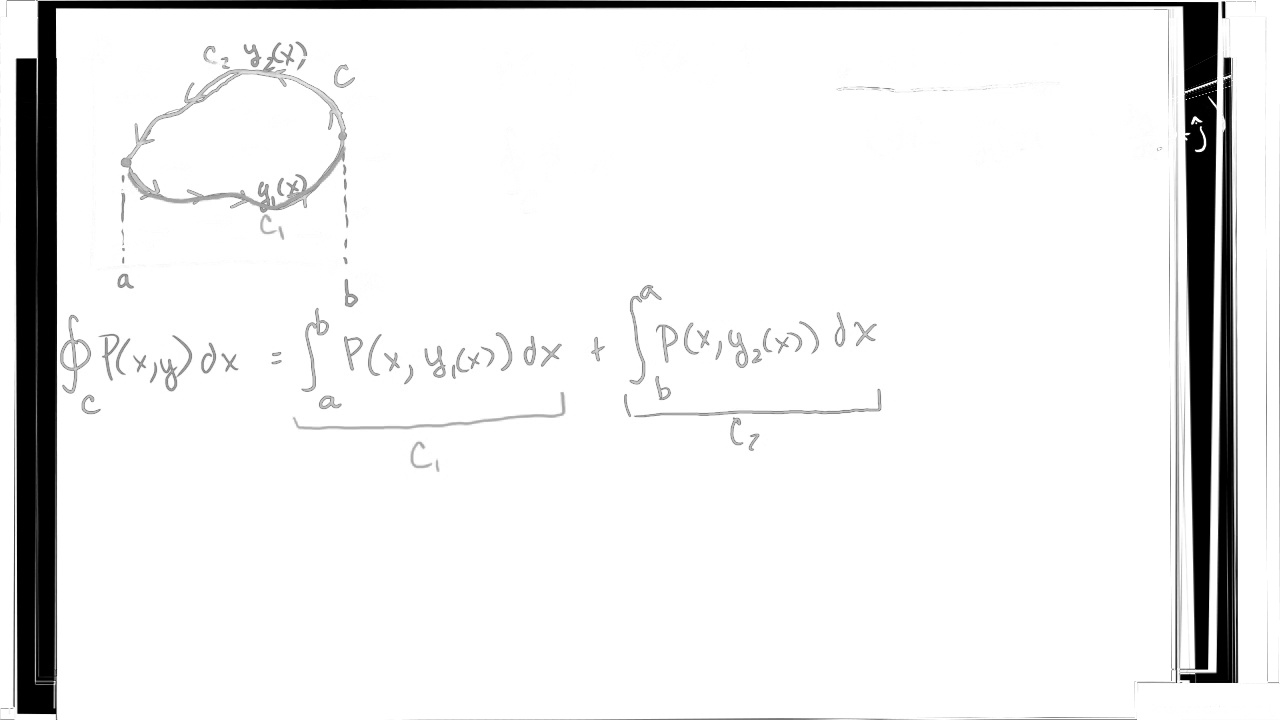 C₂ y₂(x)
C
+ĵ
y₁(x)
C₁
a
b
∮_C P(x,y) dx = ∫_a^b P(x, y₁(x)) dx + ∫_b^a P(x, y₂(x)) dx
C₁ C₂